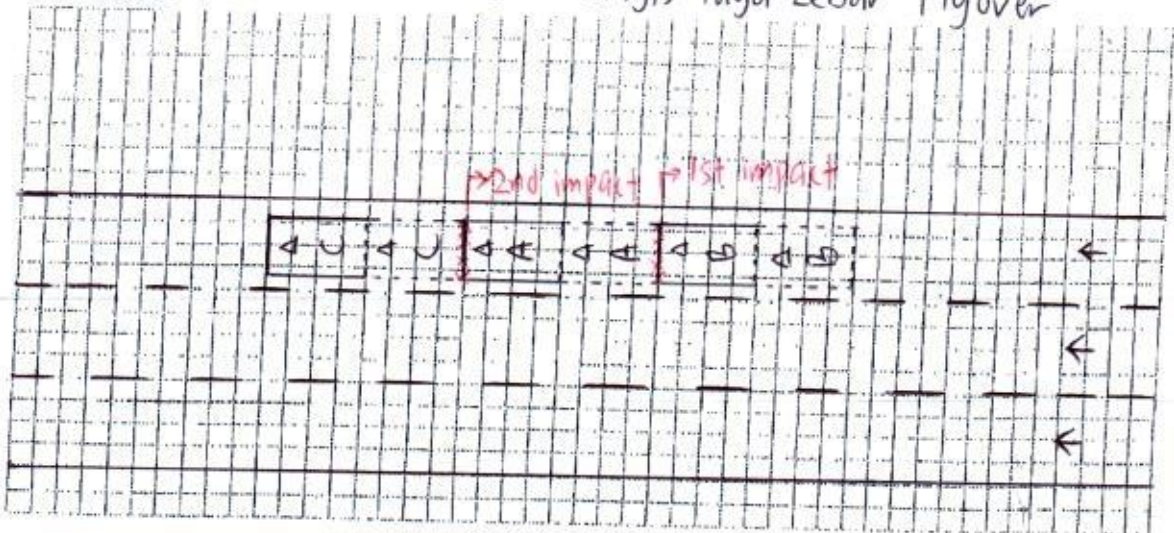 Flyover
2nd impact 1st impact
C C A A b b